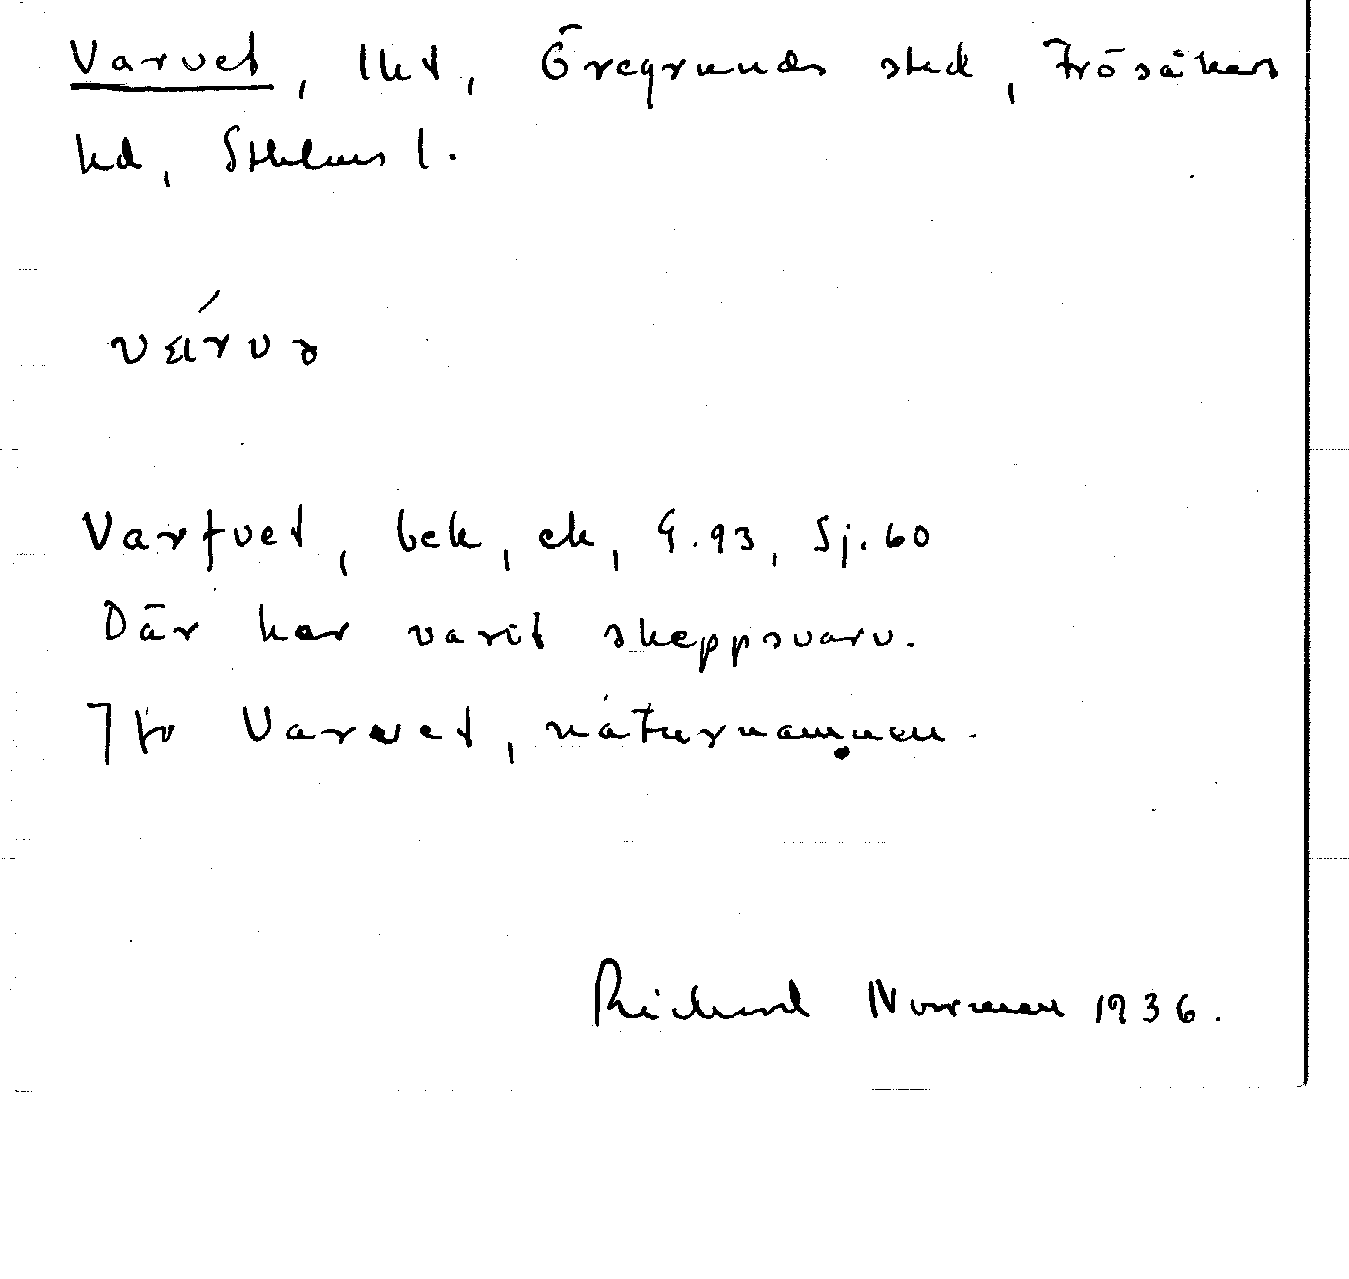 Varvet, lkt, Öregrunds skd, Frösåkers
hd, Sthlms l.
várvə
Varfvet, bek, ek, G.93, Sj.60
Där har varit skeppsvarv.
Jfr Varvet, naturnamnen.
Richard Norrman 1936.